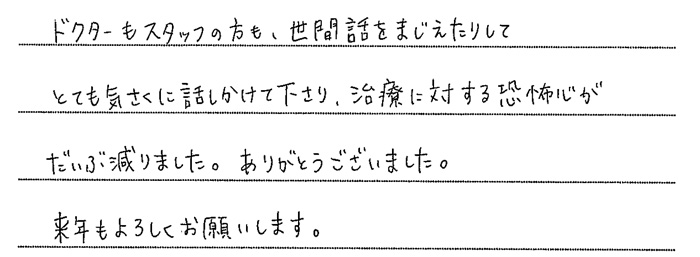 ドクターもスタッフの方も、世間話をまじえたりして
とても気さくに話しかけて下さり、治療に対する恐怖心が
だいぶ減りました。ありがとうございました。
来年もよろしくお願いします。